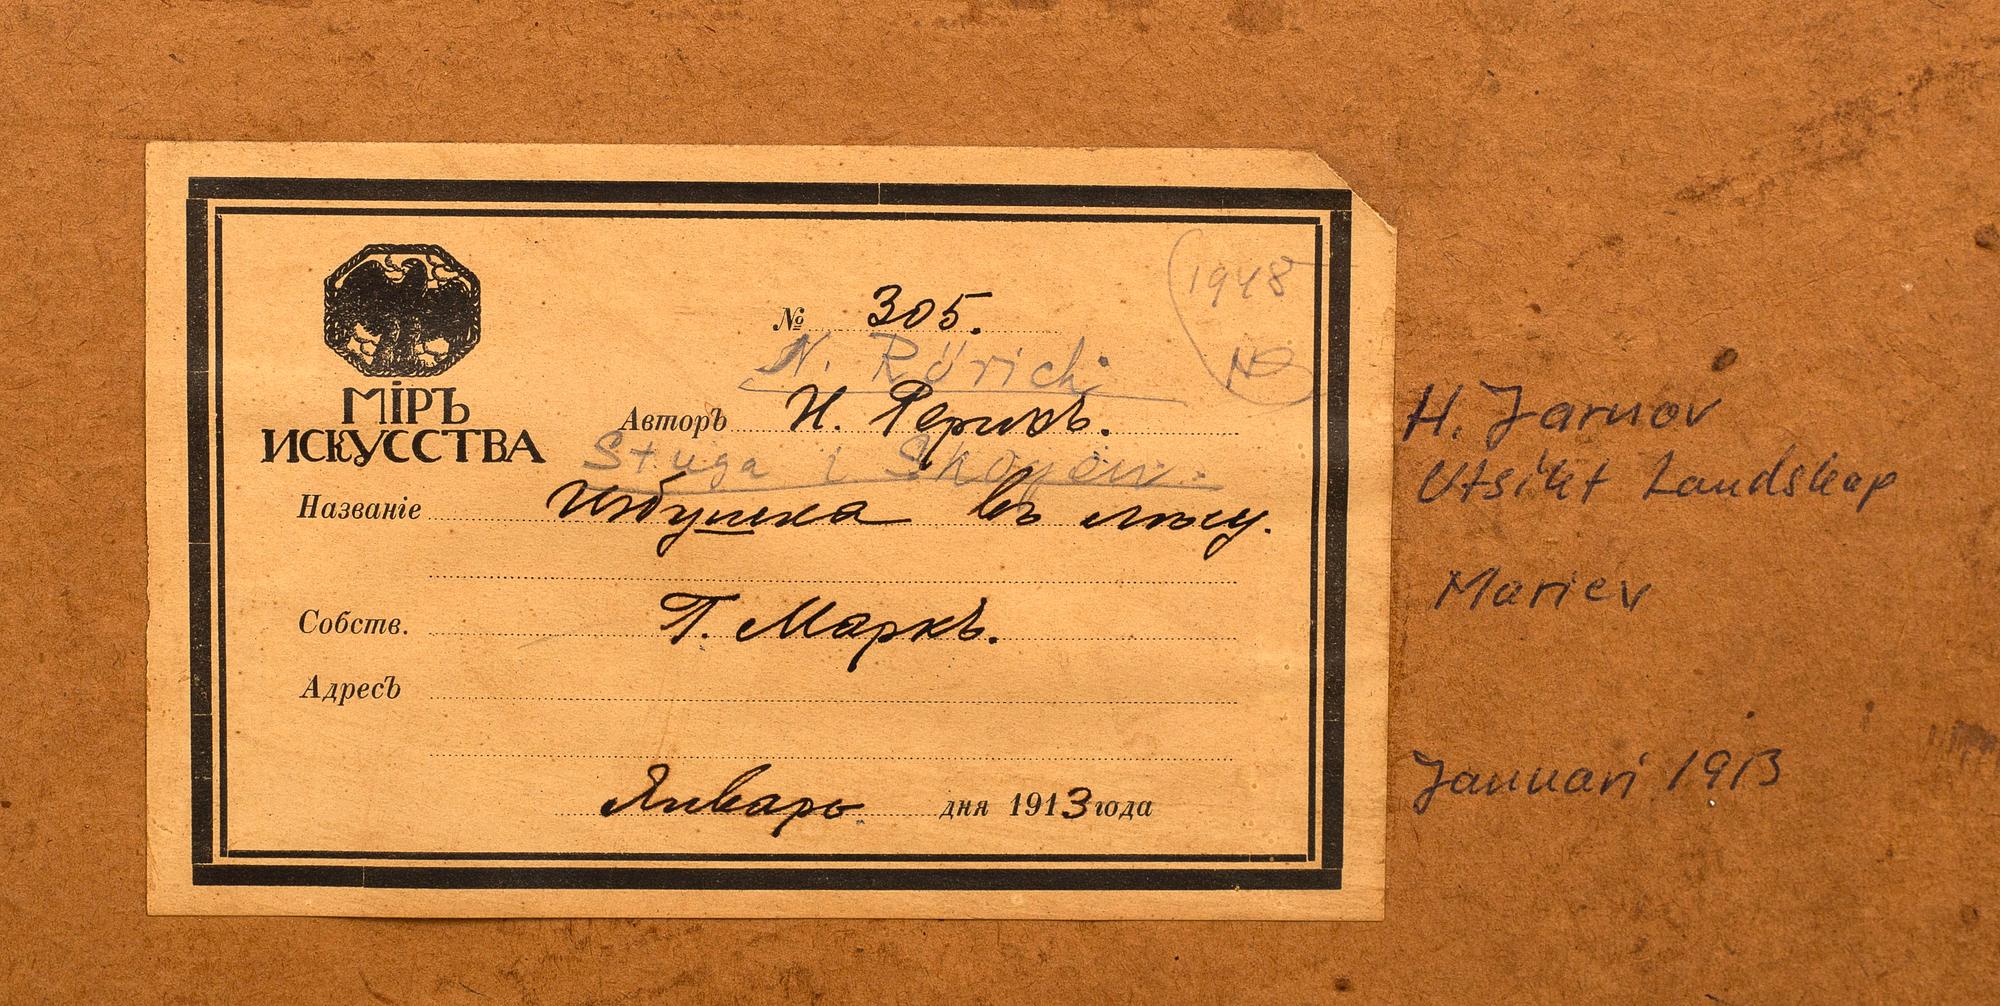 1948
№ 305.
N. Rörich
МІРЪ
ИСКУССТВА
Авторъ Н. Рерихъ.
H. Jarnov
Stuga i Skogen.
Utsikt Landskap
Названіе Избушка въ лѣсу.
Mariev
Собств. Г. Маркъ.
Адресъ
Январь дня 1913 года
Januari 1913